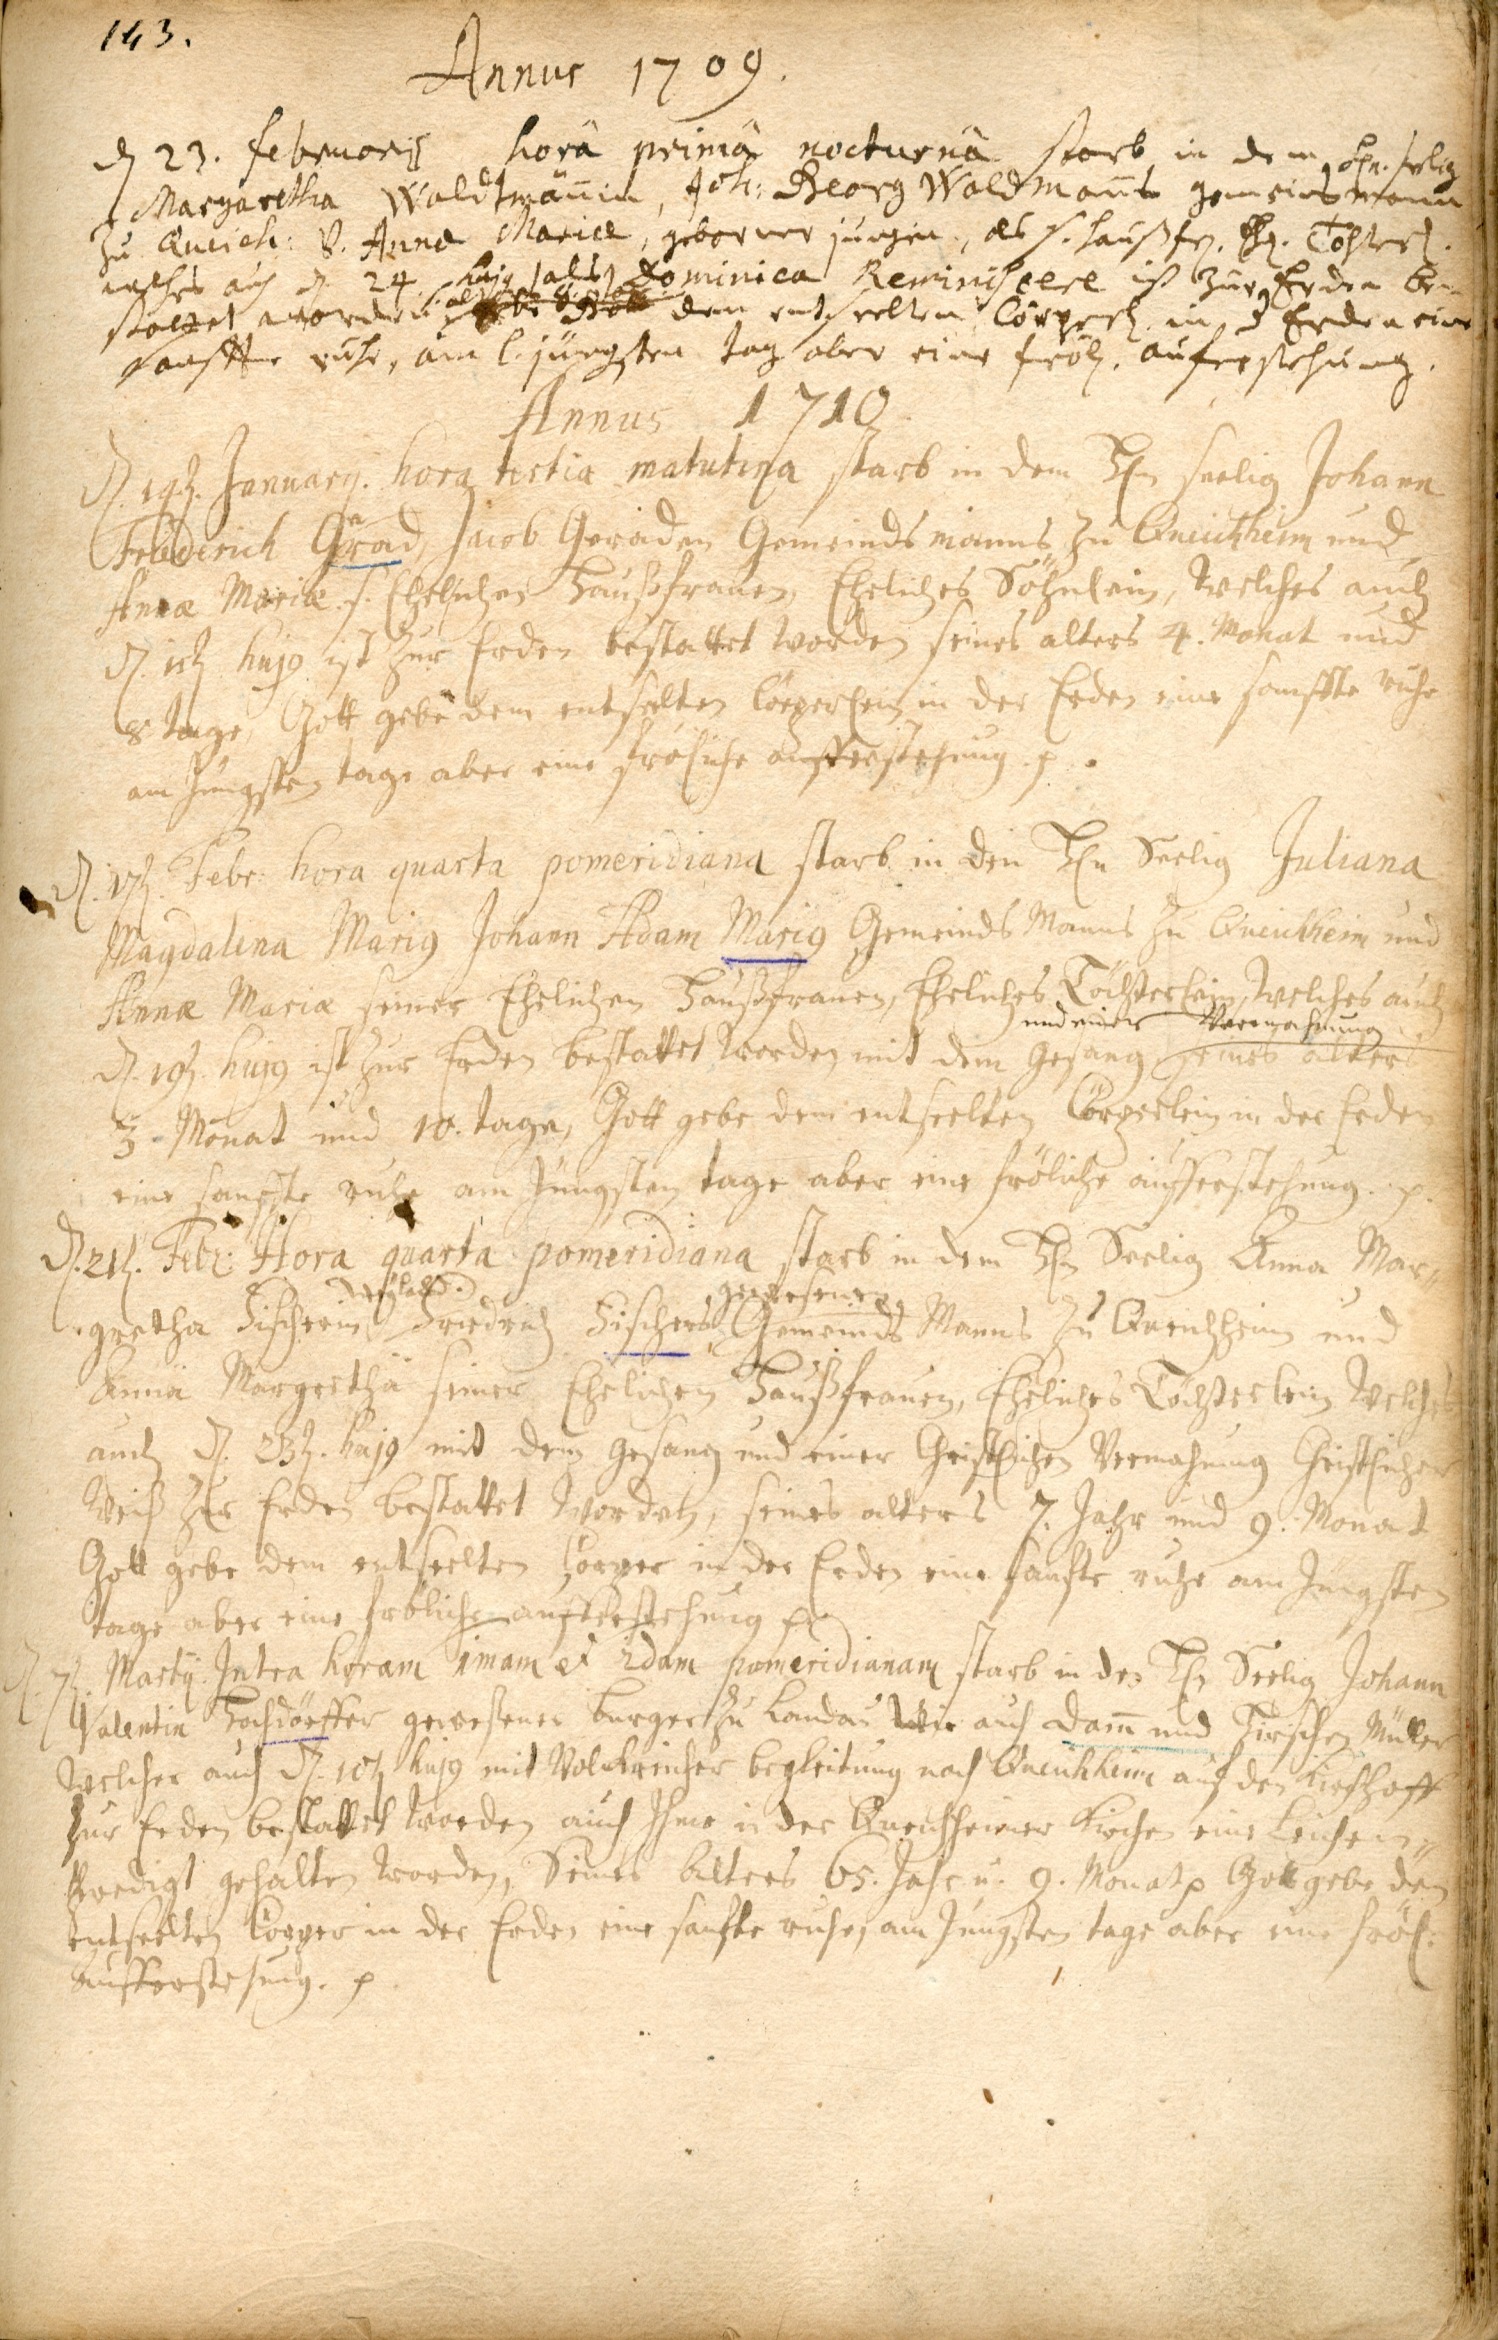 143.
Annus 1709.
d. 23. februarij horâ primâ nocturnâ starb in dem Hn. selig
Margaretha Waldtmännin, Joh: Georg Waldmanns gemeinsmann
zu Queich: v. Anna Mariae, geborner jungin, als s. haußfr. Ehl. Töchterl.
welches auch d. 24 hujg Dominica Reminiscere ist zur Erden be-
stattet worden. dem entseelten Cörperl. in d Erden eine
sanffte ruhe, am l. jüngsten tag aber eine fröhl. aufferstehung.
Annus 1710
d. January. hora tertia matutina starb in dem Hn seelig Johann
Friederich Grad, Jacob Geraden Gemeindsmanns zu Queichheim und
Annæ Mariæ s. Ehelichen Haußfrauen, Eheliches Söhnlein, welches auch
d. hujg ist zur Erden bestattet worden seines alters 4. Monat und
8 tage, Gott gebe dem entseelten Cörperlein in der Erden eine sanffte ruhe
am Jüngsten tage aber eine fröliche aufferstehung. p.
d. 17t. Febr: hora quarta pomeridiana starb in den Hn Seelig Juliana
Magdalena Marig Johann Adam Marig Gemeinds Manns zu Queichheim und
Annæ Mariæ seiner Ehelichen Haußfrauen, Eheliches Töchterlein, welches auch
und einer Vermahnung
d. 19t. hujg ist zur Erden bestattet worden mit dem Gesang seines alters
3. Monat und 10. tage, Gott gebe dem entseelten Cörperlein in der Erden
eine sanffte ruhe am Jüngsten tage aber eine fröliche aufferstehung. p.
d. 21t. Febr: Hora quarta pomeridiana starb in dem Hn Seelig Anna Mar-
weyland gewesenen
gretha Fischerin, Friedrich Fischers Gemeinds Manns zu Queichheim und
Annä Margrethä seiner Ehelichen Haußfrauen, Eheliches Töchterlein welches
auch d. 23t. hujg mit dem Gesang und einer Christlichen Vermahnung Christlicher
Weiß zur Erden bestattet worden, seines alters 7. Jahr und 9. Monat
Gott gebe dem entseelten Cörper in der Erden eine sanfte ruhe am Jüngsten
tage aber eine fröliche aufferstehung p
d. 7t. Martij. Intra horam 1mam et 2dam pomeridianam starb in den Hn Seelig Johann
Valentin Hochdörffer gewesener burger zu Landau wie auch Damm und Hirschen Müller
welcher auch d. 10t hujg mit Volckreicher begleitung nach Queichheim auf den Kirchhoff
zur Erden bestattet worden auch Ihme in der Queichheimer Kirchen eine Leichen-
predigt gehalten worden, Seines alters 65. Jahr u. 9. Monat p Gott gebe dem
entseelten Cörper in der Erden eine sanfte ruhe, am Jüngsten tage aber eine fröhl:
aufferstehung. p